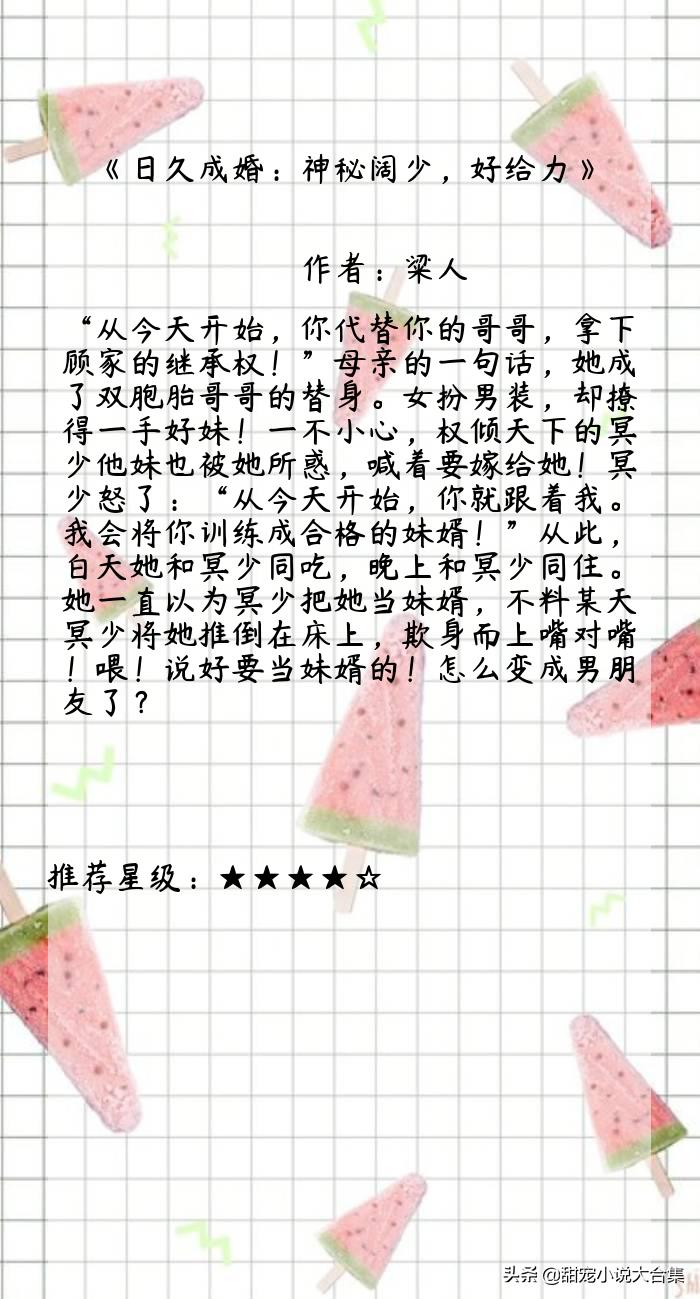 《日久成婚：神秘阔少，好给力》
作者：梁人
“从今天开始，你代替你的哥哥，拿下
顾家的继承权！”母亲的一句话，她成
了双胞胎哥哥的替身。女扮男装，却撩
得一手好妹！一不小心，权倾天下的冥
少他妹也被她所惑，喊着要嫁给她！冥
少怒了：“从今天开始，你就跟着我。
我会将你训练成合格的妹婿！”从此，
白天她和冥少同吃，晚上和冥少同住。
她一直以为冥少把她当妹婿，不料某天
冥少将她推倒在床上，欺身而上嘴对嘴
！喂！说好要当妹婿的！怎么变成男朋
友了？
推荐星级：★★★★☆
头条 @甜宠小说大合集